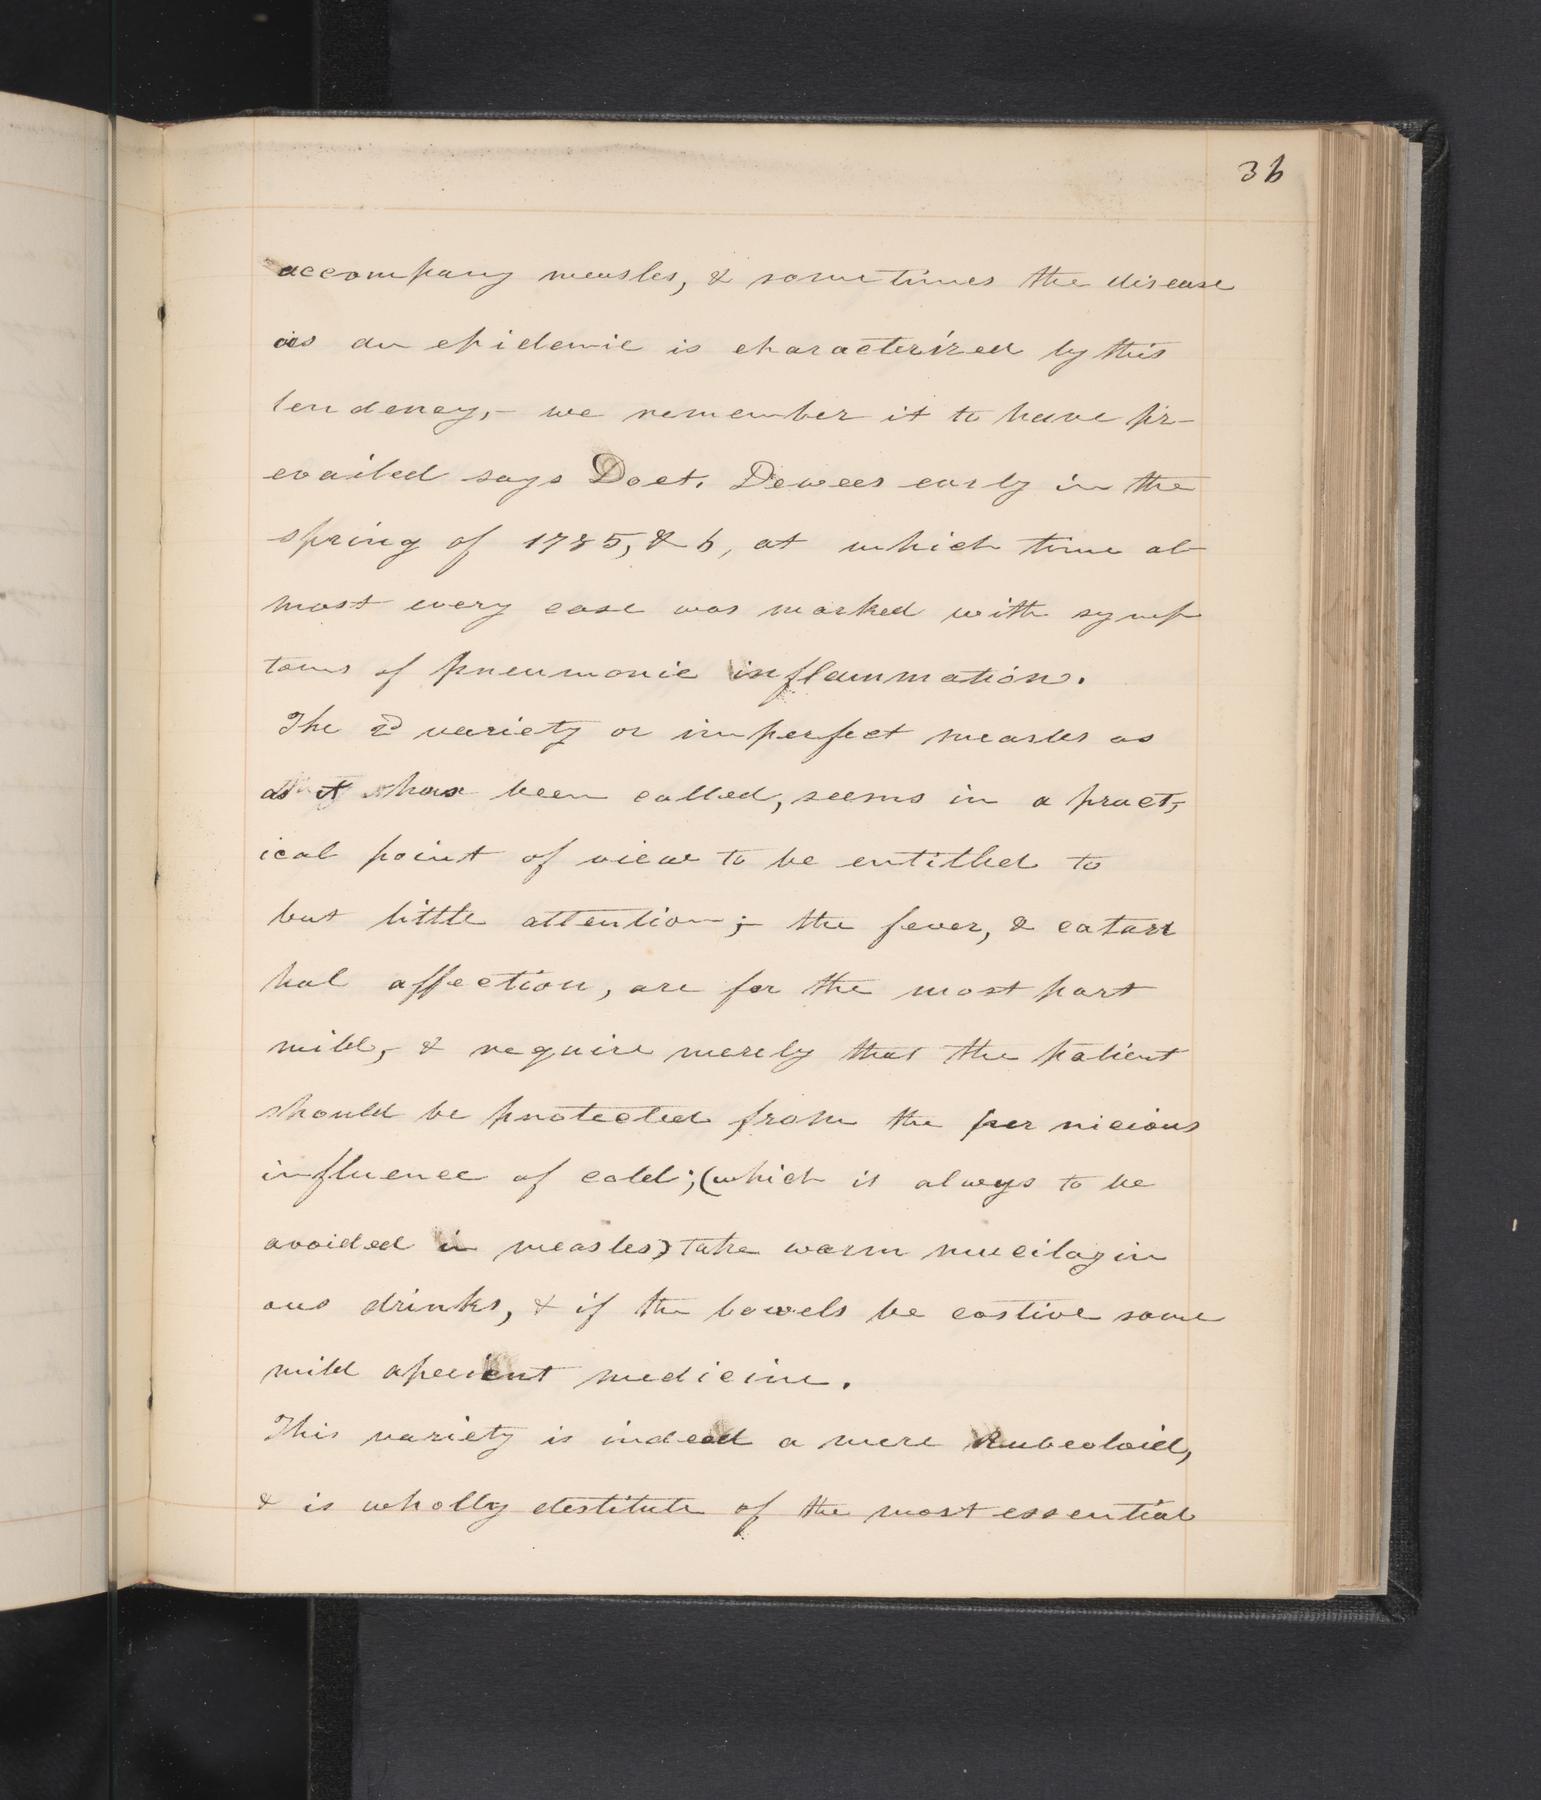 36
accompany measles, & sometimes the disease
as an epidemic is characterized by this
tendency,- we remember it to have pr-
evailed says Doct. Dewees early in the
spring of 1785, & 6, at which time al-
most every case was marked with symp
toms of pneumonic inflammation.
The 2d variety or imperfect measles as
as it has been called, seems in a pract,
ical point of view to be entitled to
but little attention;- the fever, & catarr
hal affection, are for the most part
mild,- & require merely that the patient
should be protected from the pernicious
influence of cold; (which is always to be
avoided in measles) take warm mucilagin
ous drinks, & if the bowels be costive some
mild aperient medicine.
This variety is indeed a mere Rubeoloid,
& is wholly destitute of the most essential